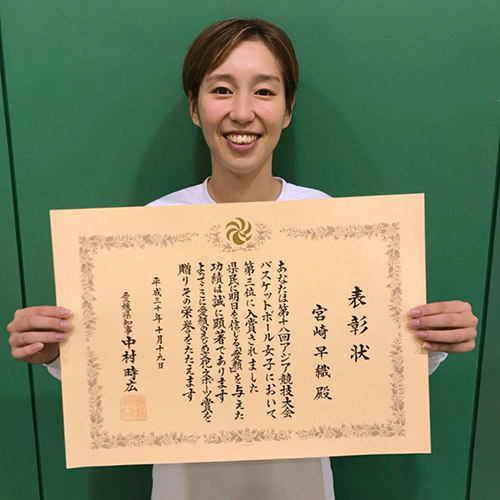 表彰状
宮崎早織殿
あなたは第十八回アジア競技大会
バスケットボール女子において
第三位に入賞されました
県民に明日を信じる愛顔を与えた
功績は誠に顕著であります
よってここに愛媛のさきの文化・スポーツ賞を
贈りその栄誉をたたえます
平成三十年十月十九日
愛媛県知事 中村時広